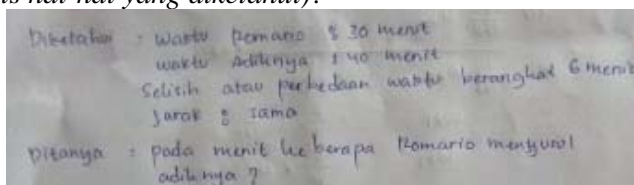 is hal-hal yang diketahui)!
Diketahui : waktu Romario : 30 menit
waktu Adiknya : 40 menit
Selisih atau perbedaan waktu berangkat 6 menit
Jarak : sama
Ditanya : pada menit ke berapa Romario menyusul
adiknya ?